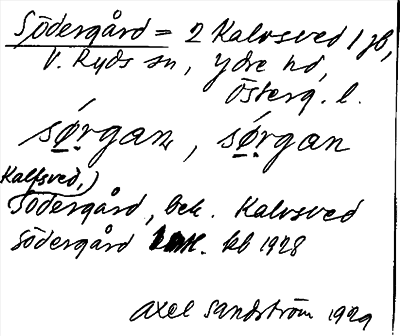 Södergård = 2 Kalvsved 1 gb,
V. Ryds sn, Ydre hd,
Österg. l.
sørgan, sørgan
Kalfsved,)
Södergård, bek. Kalvsved
Södergård kk. kb 1928
Axel Sandström 1929